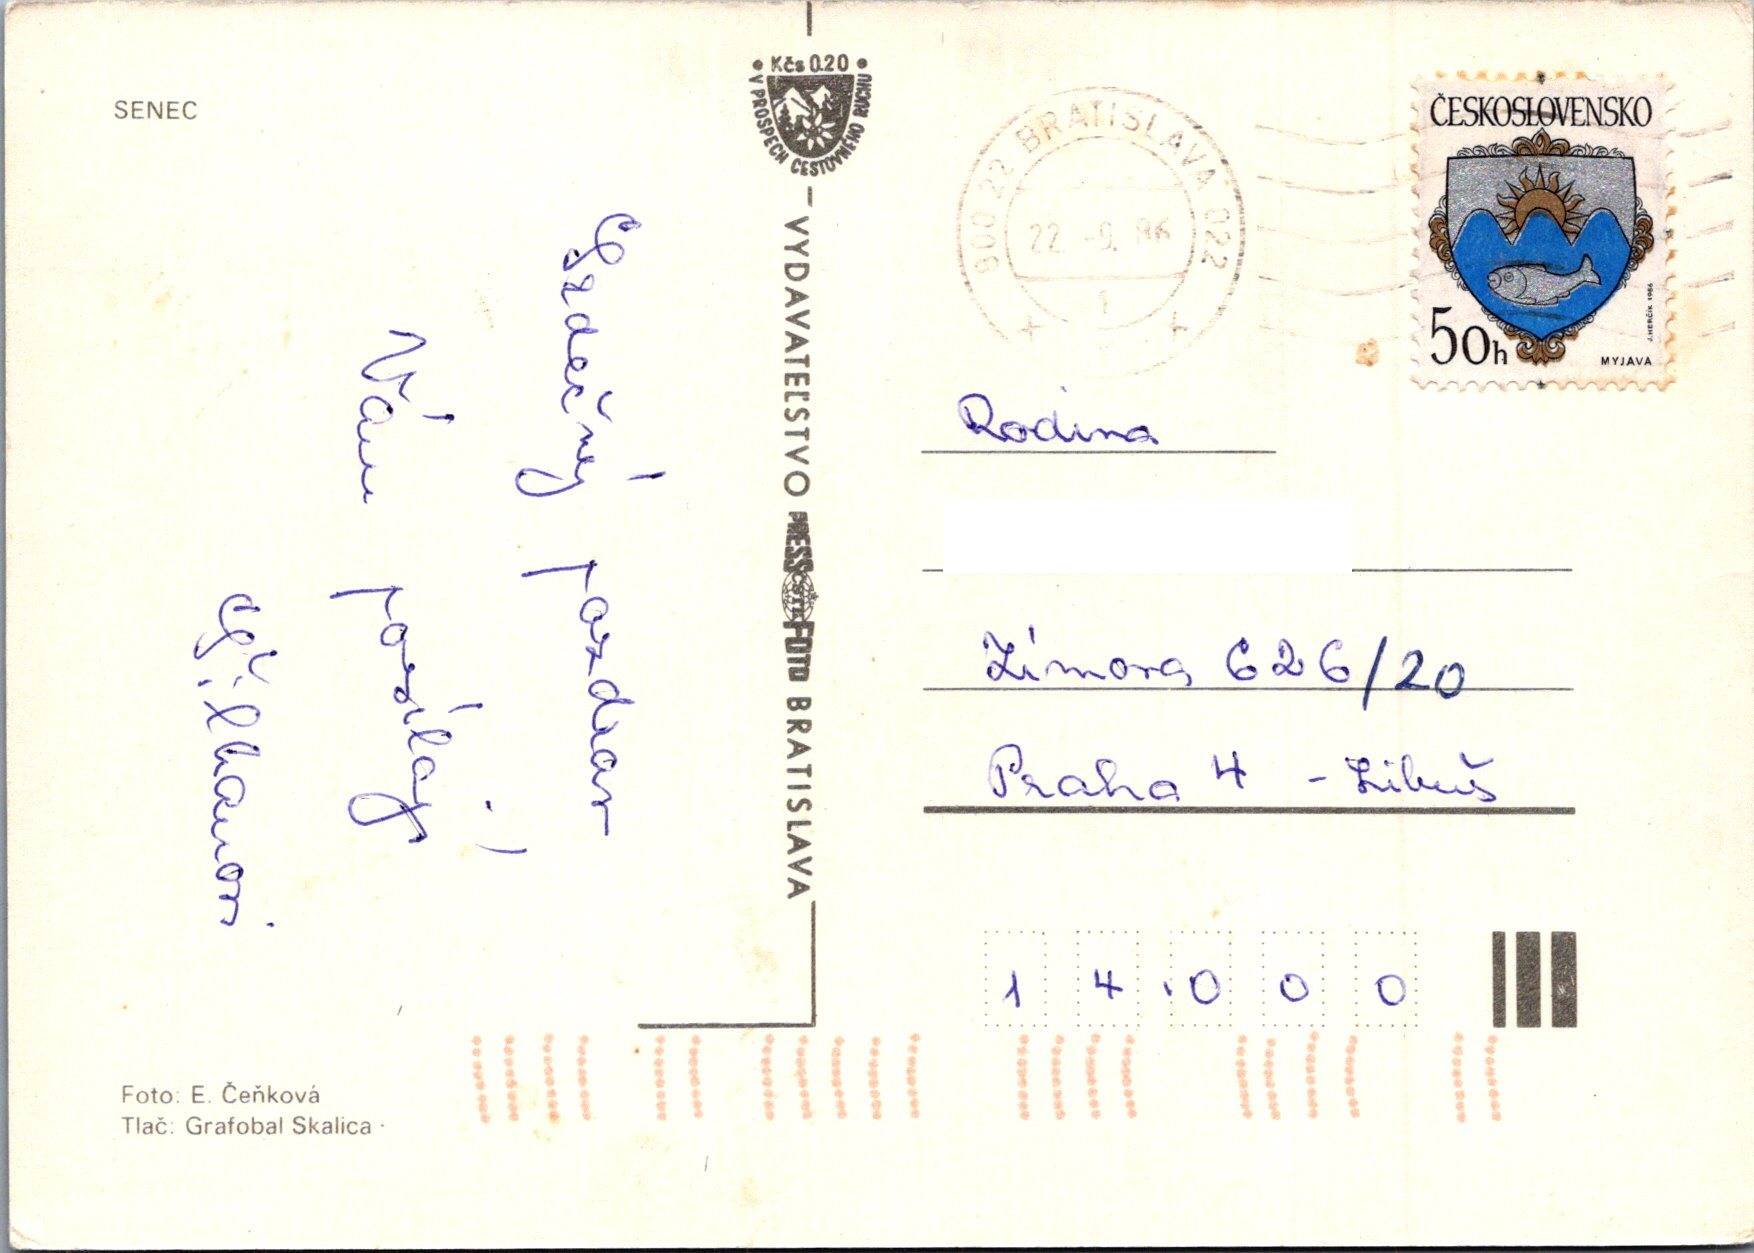 SENEC
Kčs 0.20
V PROSPECH CESTOVNÉHO RUCHU
VYDAVATEĽSTVO PRESSFOTO BRATISLAVA
ČSTK
Srdečný pozdrav
Vám posílají
Foto: E. Čeňková
Tlač: Grafobal Skalica
900 22 BRATISLAVA 022
22.-9. 86
1
ČESKOSLOVENSKO
50h
MYJAVA
J.HERČÍK 1986
Rodina
Zímova 626/20
Praha 4 - Libuš
14000